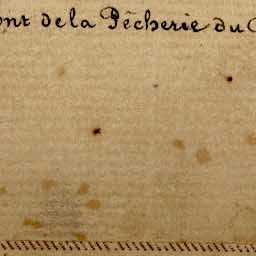 ont de la Pêcherie du